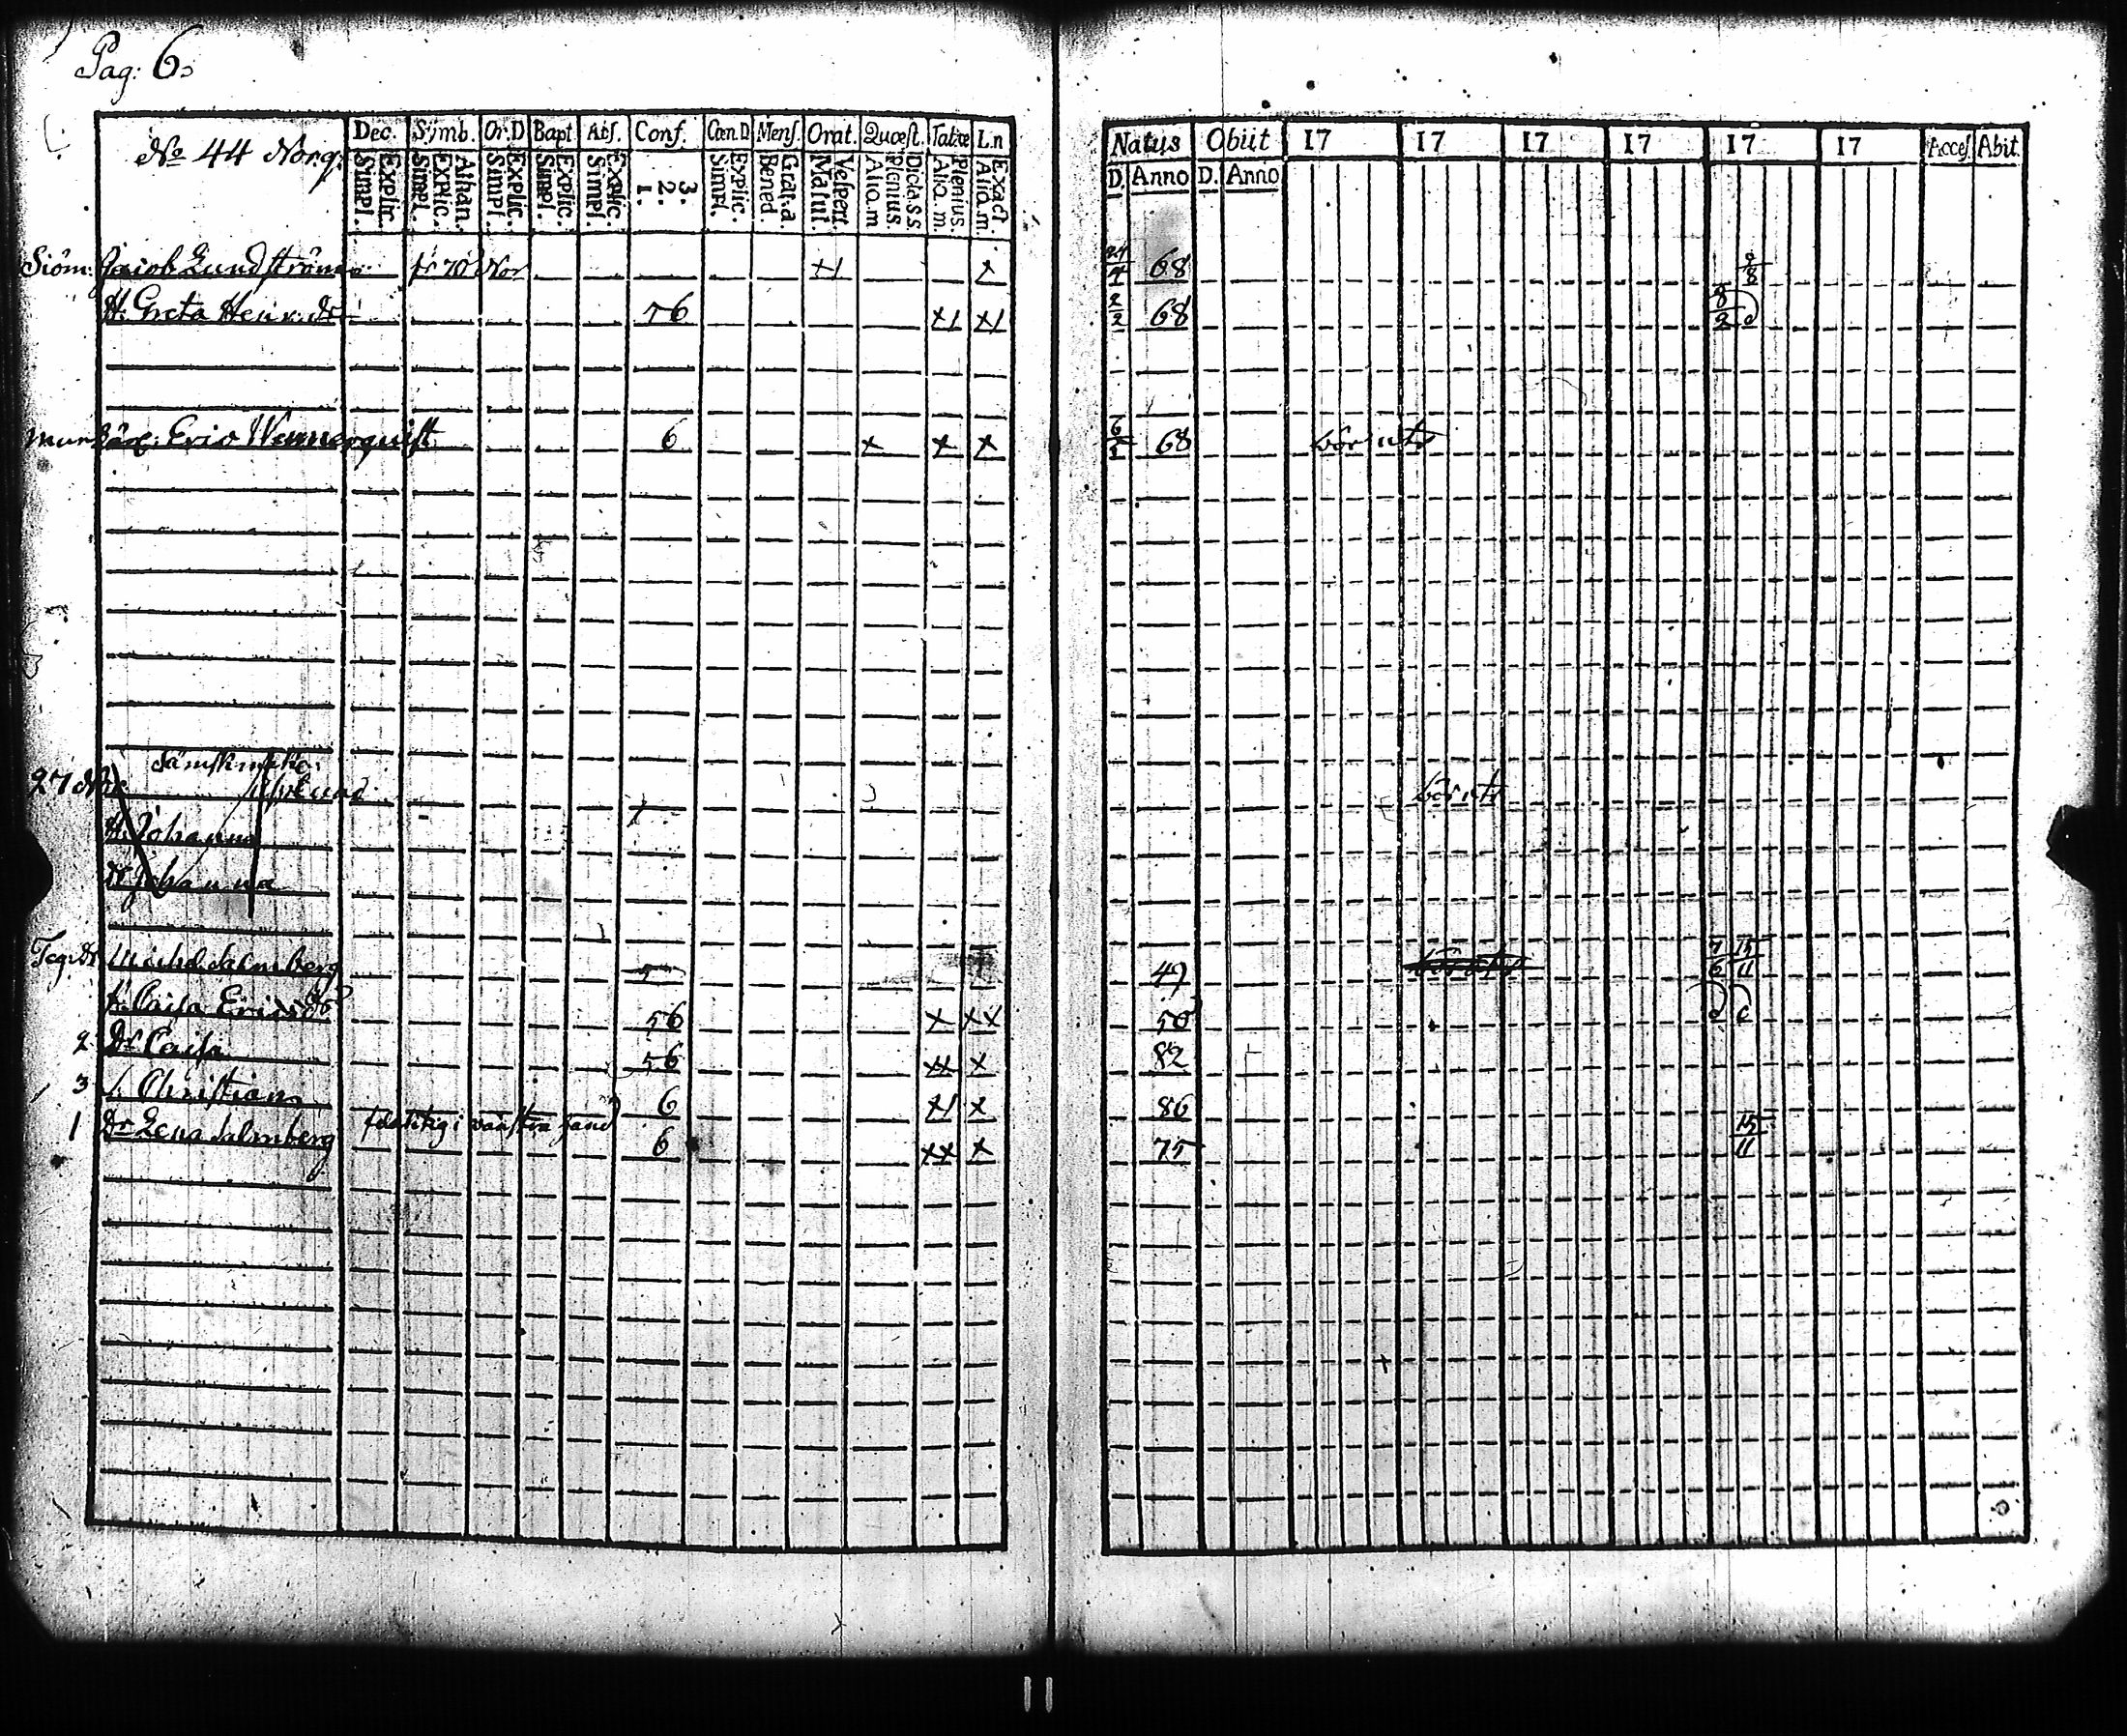 Pag: 6.
No 44 Norg:
Dec. Symb. Or.D Bapt. Abs. Conf. Cœn.D Mens. Orat. Quæst. Tabæ L.n
Explic. Simpl. Athan. Explic. Simpl. Explic. Simpl. Explic. Simpl. Explic. Simpl. 3. 2. 1. Explic. Simpl. Grat.a. Bened. Vespert. Matut. Dicta.S.S. Plenius. Aliq.m Plenius. Aliq.m. Exact Aliq.m.
Natus Obiit 17 17 17 17 17 17 Acces. Abit.
D. Anno D. Anno
Siöm: Jacob Lundström 70 Nor +1 x 24/4 68 2/8
H. Greta Henr: dr 56 x1 x1 2/2 68 8/2
Eric Wennerquist 6 x x x 6/1 68 bor uti
27 Nor
H. Johanna
Dr Johanna
bor uti
Salmberg 5 49 7/6 15/11
H. Caisa Ericsdr 56 x xx 50
2 Dr Caisa 56 xx x 82
3 Christian 6 x1 x 86
1 Dr Lena Salmberg 6 xx x 75 15/11
11